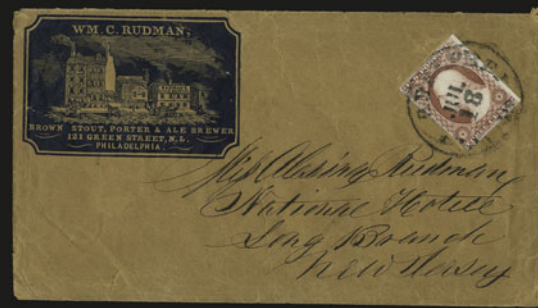 WM. C. RUDMAN,
BROWN STOUT, PORTER & ALE BREWER
121 GREEN STREET, N.L.
PHILADELPHIA.
JUL
18
Rudman
National Hotel
Long Branch
New Jersey